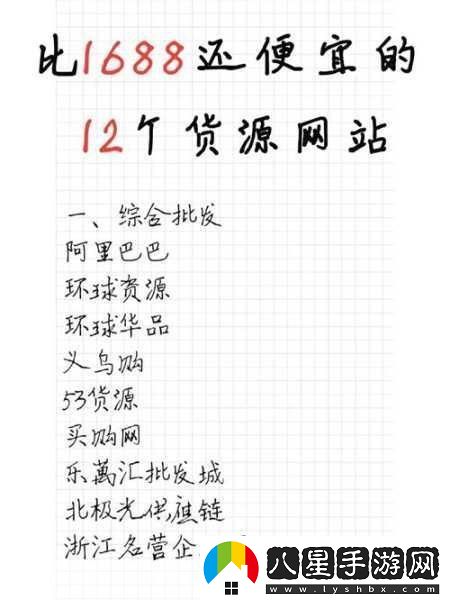 比1688还便宜的
12个货源网站
一、综合批发
阿里巴巴
环球资源
环球华品
义乌购
53货源
买购网
乐萬汇批发城
北极光供应链
浙江名营企
八星手游网
www.lyshbx.com